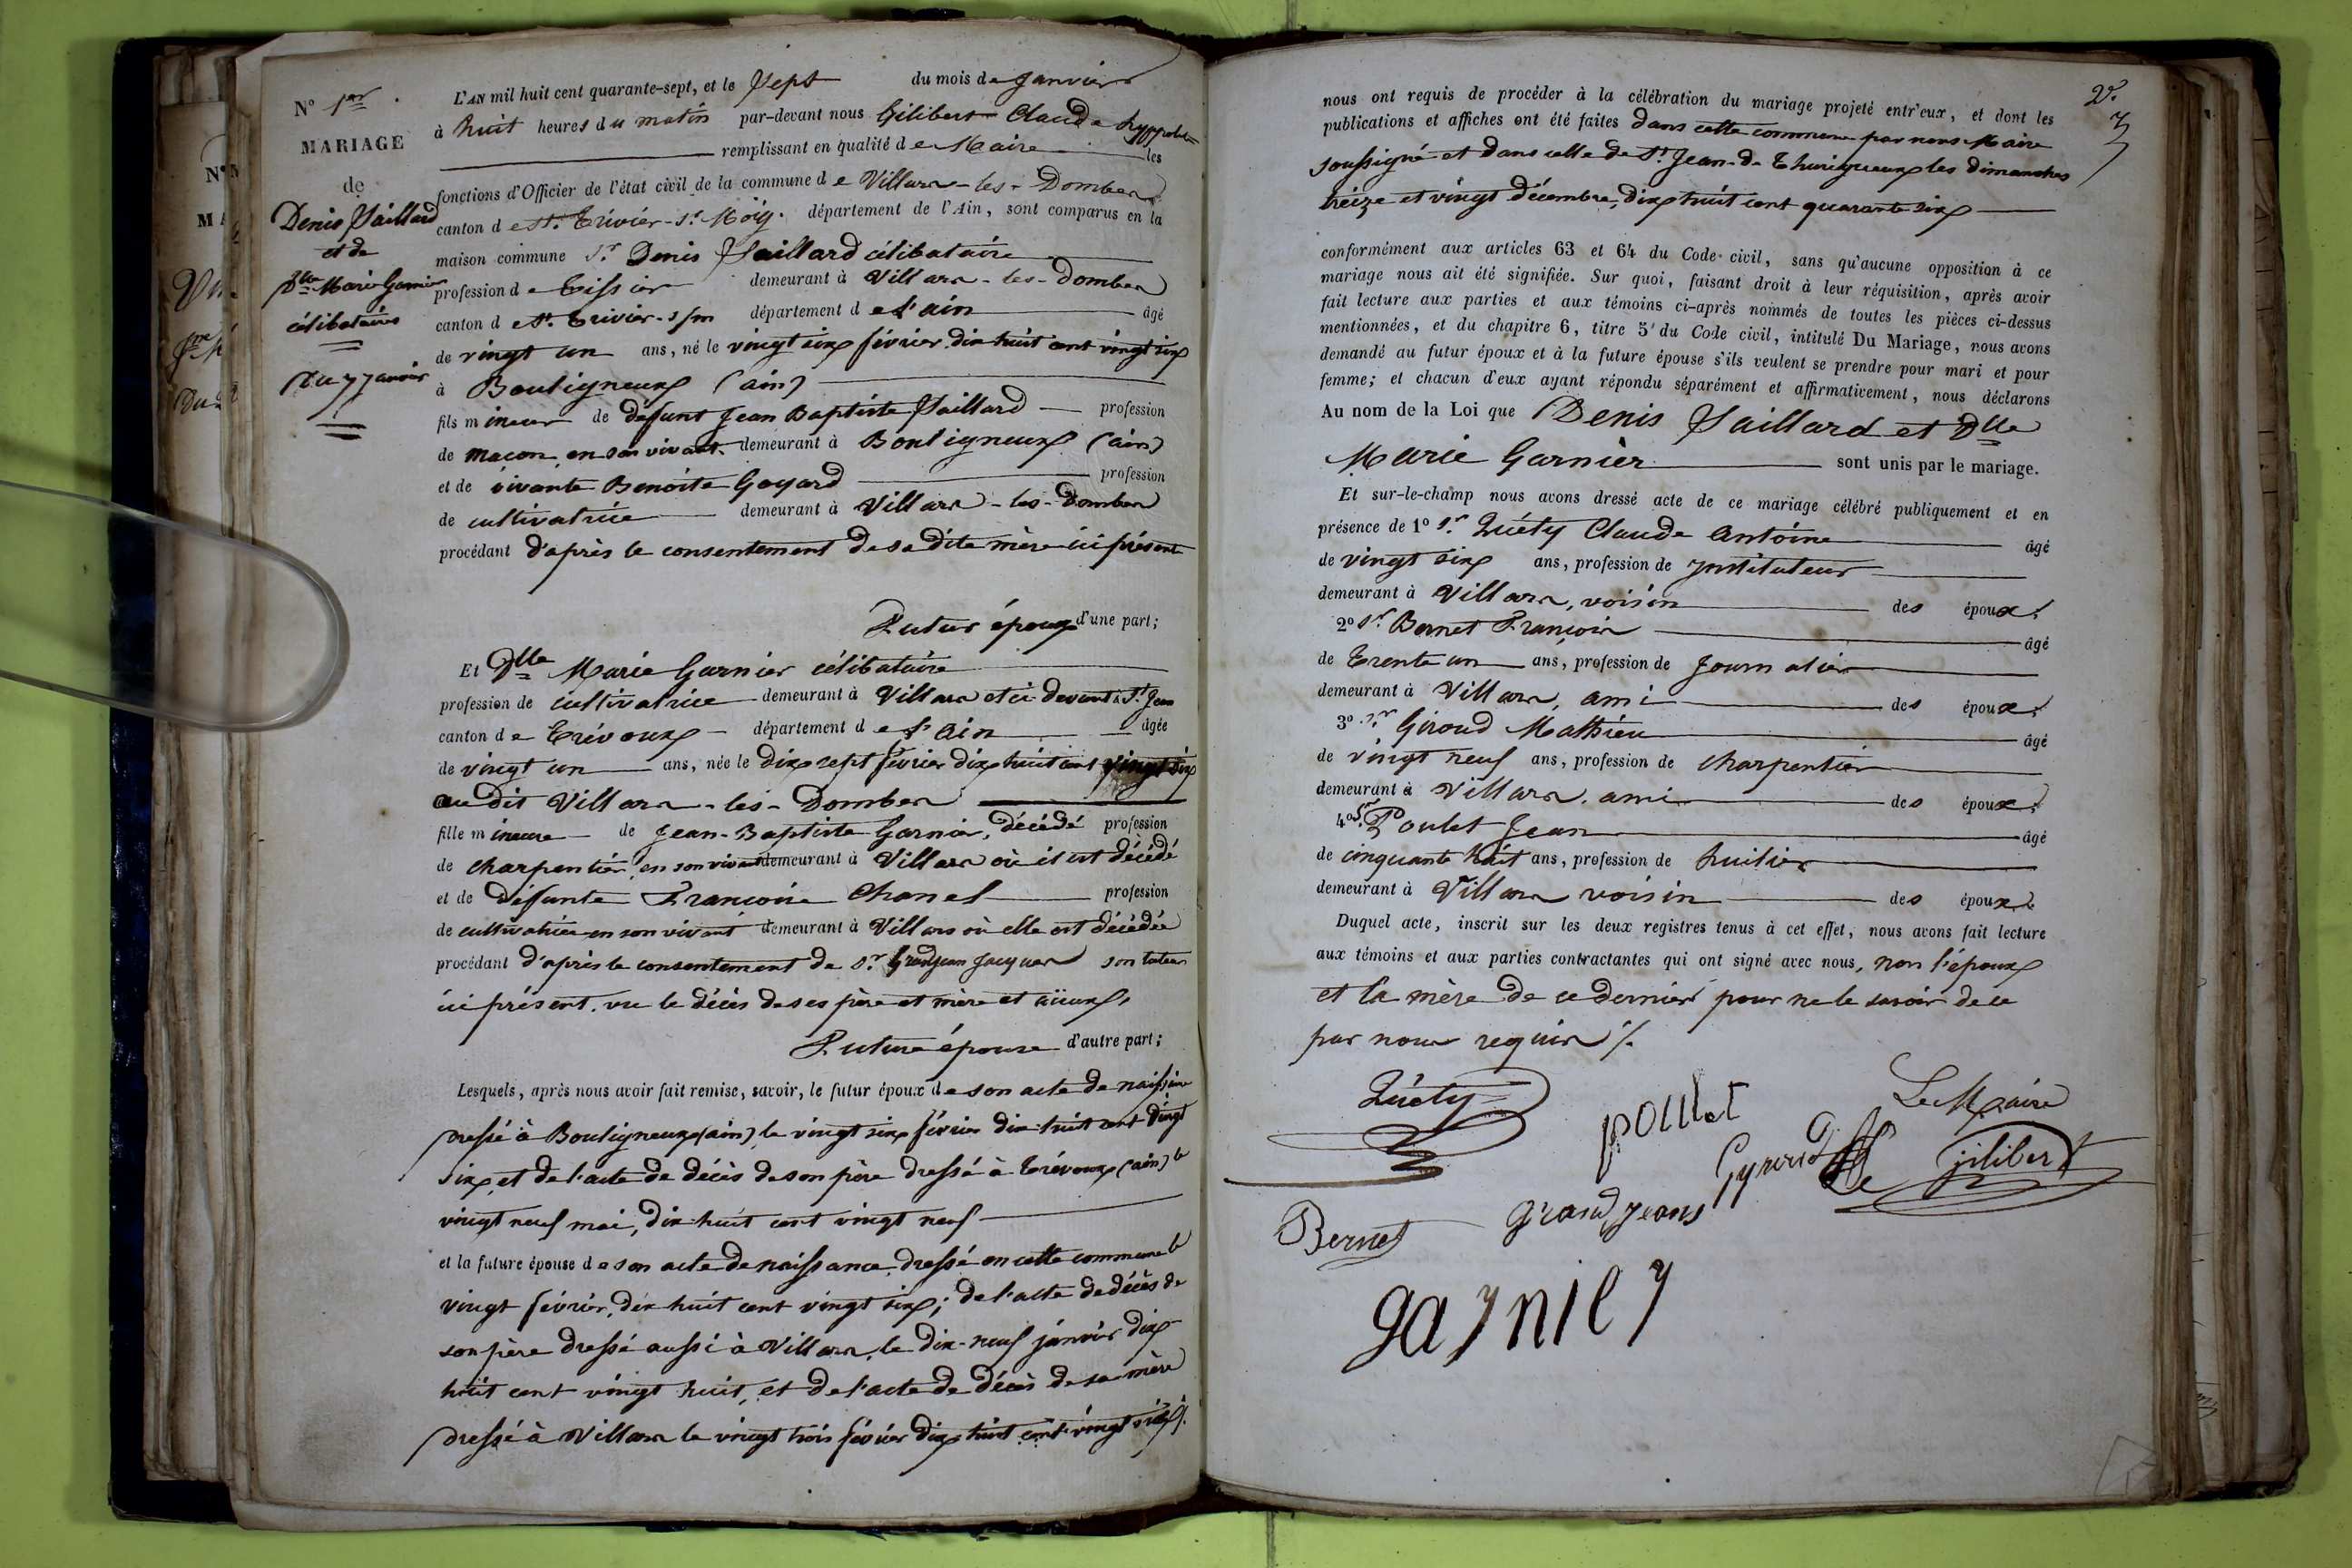 N° 1er
MARIAGE
de
Denis Saillard
et de
Dlle Marie Garnier
célibataires
Du 7 Janvier
L'AN mil huit cent quarante-sept, et le Sept du mois de Janvier
à huit heures du matin par-devant nous Gilibert Claude hyppolite
remplissant en qualité de Maire les
fonctions d'Officier de l'état civil de la commune de Villars-les-Dombes
canton de St. Trivier-St Moig. département de l'Ain, sont comparus en la
maison commune Sr. Denis Saillard célibataire
profession de Tissier demeurant à Villars-les-Dombes
canton de St. Trivier-s/m département de l'ain âgé
de vingt un ans, né le vingt six février dix huit cent vingt six
à Bouligneux (ain)
fils mineur de défunt Jean Baptiste Saillard profession
de maçon, en son vivant demeurant à Bouligneux (ain)
et de vivante Benoite Goyard profession
de cultivatrice demeurant à Villars-les-Dombes
procédant d'après le consentement de sa dite mère ici présente
Futur époux d'une part;
Et Dlle Marie Garnier célibataire
profession de cultivatrice demeurant à Villars et ci devant à St. Jean
canton de Trévoux département de l'ain âgée
de vingt un ans, née le dix sept février dix huit cent vingt six
au dit Villars-les-Dombes
fille mineure de Jean-Baptiste Garnier, décédé profession
de charpentier, en son vivant demeurant à Villars où il est décédé
et de défunte Françoise Chanel profession
de cultivatrice en son vivant demeurant à Villars où elle est décédée
procédant d'après le consentement de Sr. Grandjean Jacques son tuteur
ici présent. vu le décès de ses père et mère et aïeux,
Future épouse d'autre part;
Lesquels, après nous avoir fait remise, savoir, le futur époux de son acte de naissance
dressé à Bouligneux (ain) le vingt six février dix huit cent vingt
six, et de l'acte de décès de son père dressé à Trévoux (ain) le
vingt neuf mai, dix huit cent vingt neuf
et la future épouse de son acte de naissance dressé en cette commune le
vingt février, dix huit cent vingt six; de l'acte de décès de
son père dressé aussi à Villars, le dix-neuf janvier dix
huit cent vingt huit, et de l'acte de décès de sa mère
dressé à Villars le vingt trois février dix huit cent vingt six /.
2e.
nous ont requis de procéder à la célébration du mariage projeté entr'eux, et dont les
publications et affiches ont été faites dans cette commune par nous Maire
soussigné et dans celle de St. Jean-de Thurigneux les dimanches
treize et vingt décembre, dix huit cent quarante six
conformément aux articles 63 et 64 du Code civil, sans qu'aucune opposition à ce
mariage nous ait été signifiée. Sur quoi, faisant droit à leur réquisition, après avoir
fait lecture aux parties et aux témoins ci-après nommés de toutes les pièces ci-dessus
mentionnées, et du chapitre 6, titre 5 du Code civil, intitulé Du Mariage, nous avons
demandé au futur époux et à la future épouse s'ils veulent se prendre pour mari et pour
femme; et chacun d'eux ayant répondu séparément et affirmativement, nous déclarons
Au nom de la Loi que Denis Saillard et Dlle
Marie Garnier sont unis par le mariage.
Et sur-le-champ nous avons dressé acte de ce mariage célébré publiquement et en
présence de 1° Sr. Quéty Claude Antoine âgé
de vingt six ans, profession de Instituteur
demeurant à Villars, voisin des époux.
2° Sr. Bernet François âgé
de Trente un ans, profession de Journalier
demeurant à Villars, ami des époux.
3° Sr. Giroud Mathieu âgé
de vingt neuf ans, profession de charpentier
demeurant à Villars. ami des époux.
4° Sr. Poulet Jean âgé
de cinquante huit ans, profession de huilier
demeurant à Villars voisin des époux.
Duquel acte, inscrit sur les deux registres tenus à cet effet, nous avons fait lecture
aux témoins et aux parties contractantes qui ont signé avec nous, non l'époux
et la mère de ce dernier pour ne le savoir de ce
par nous requis /.
Quéty poulet Le Maire
Gyroud jilibert
Bernet grandjeans
garnier